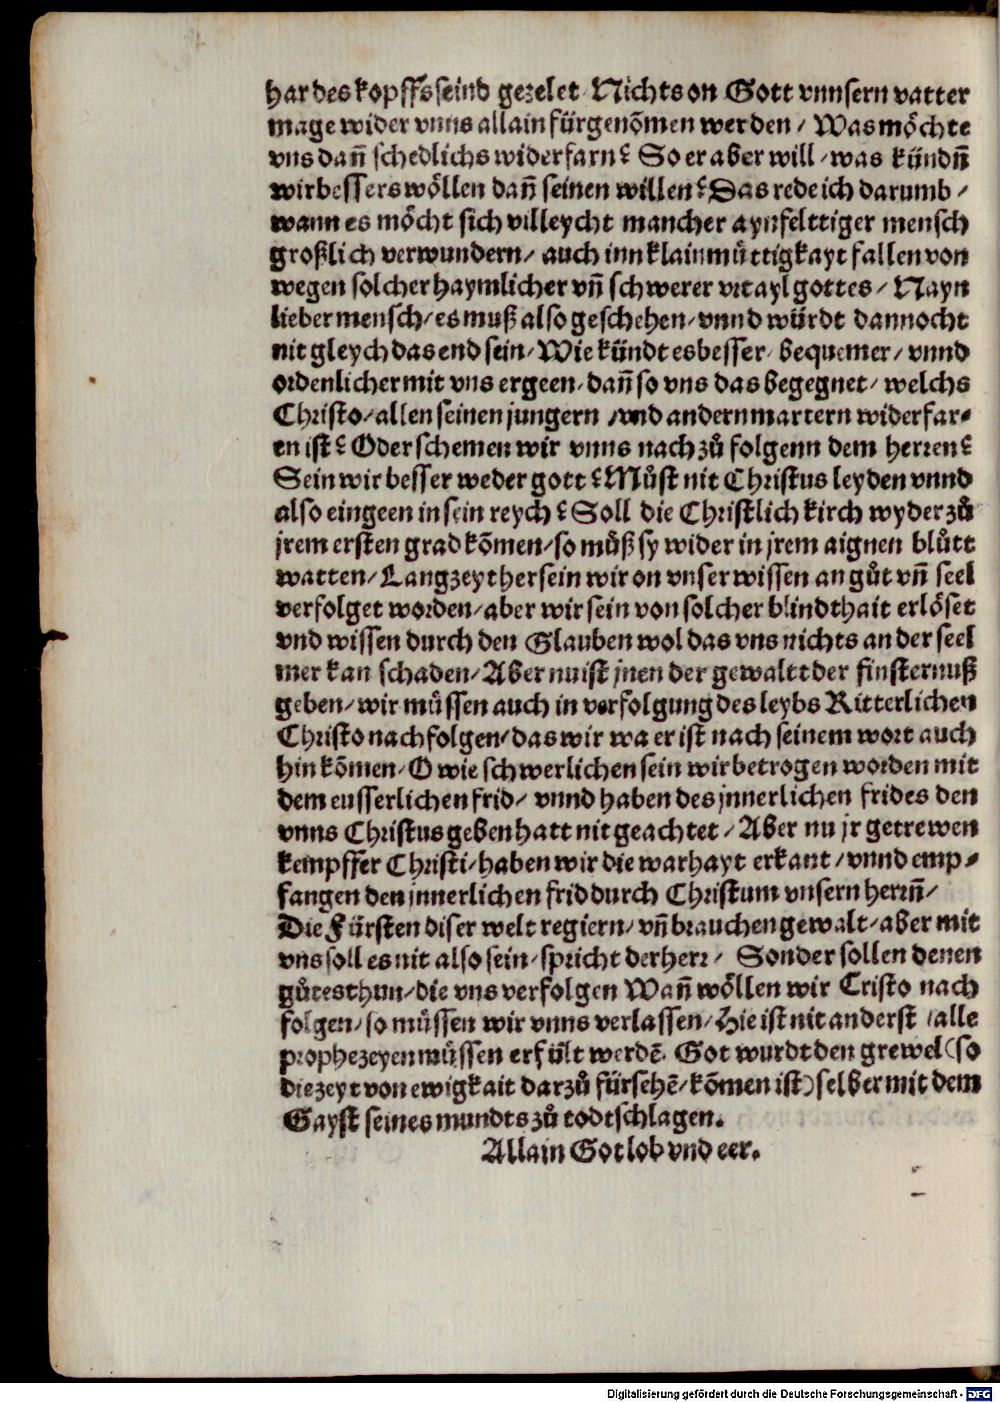 har des kopffs seind gezelet Nichts on Gott vnnsern vatter
mage wider vnns allain fürgenōmen werden / Was möchte
vns dañ schedlichs widerfarn? So er aber will / was kündñ
wir bessers wöllen dañ seinen willen? Das rede ich darumb /
wann es möcht sich villeycht mancher aynfelttiger mensch
großlich verwundern / auch inn klainmůttigkayt fallen von
wegen solcher haymlicher vñ schwerer vrtayl gottes / Nayn
lieber mensch / es muß also geschehen / vnnd würdt dannocht
nit gleych das end sein / Wie kündt es besser / bequemer / vnnd
ordenlicher mit vns ergeen / dañ so vns das begegnet / welchs
Christo / allen seinen jungern / vnd andern martern widerfar⸗
en ist? Oder schemen wir vnns nach zů folgenn dem herren?
Sein wir besser weder gott? Můst nit Christus leyden vnnd
also eingeen in sein reych? Soll die Christlich kirch wyder zů
jrem ersten grad kōmen / so můß sy wider in jrem aignen blůtt
watten / Langzeyther sein wir on vnser wissen an gůt vñ seel
verfolget worden / aber wir sein von solcher blindthait erlöset
vnd wissen durch den Glauben wol das vns nichts an der seel
mer kan schaden / Aber nu ist jnen der gewaltt der finsternuß
geben / wir müssen auch in verfolgung des leybs Ritterlichen
Christo nachfolgen / das wir wa er ist nach seinem wort auch
hin kōmen / O wie schwerlichen sein wir betrogen worden mit
dem eusserlichen frid / vnnd haben des jnnerlichen frides den
vnns Christus geben hatt nit geachtet / Aber nu jr getrewen
kempffer Christi / haben wir die warhayt erkant / vnnd emp⸗
fangen den jnnerlichen frid durch Christum vnsern herrñ /
Die Fürsten diser welt regiern / vñ brauchen gewalt / aber mit
vns soll es nit also sein / spricht der herr / Sonder sollen denen
gůtes thun / die vns verfolgen Wañ wöllen wir Cristo nach
folgen / so müssen wir vnns verlassen / Hie ist nit anderst / alle
prophezeyen müssen erfült werdē. Got wurdt den grewel (so
die zeyt von ewigkait darzů fürsehē / kōmen ist) selber mit dem
Gayst seines mundts zů todt schlagen.
Allain Got lob vnd eer.
Digitalisierung gefördert durch die Deutsche Forschungsgemeinschaft - DFG